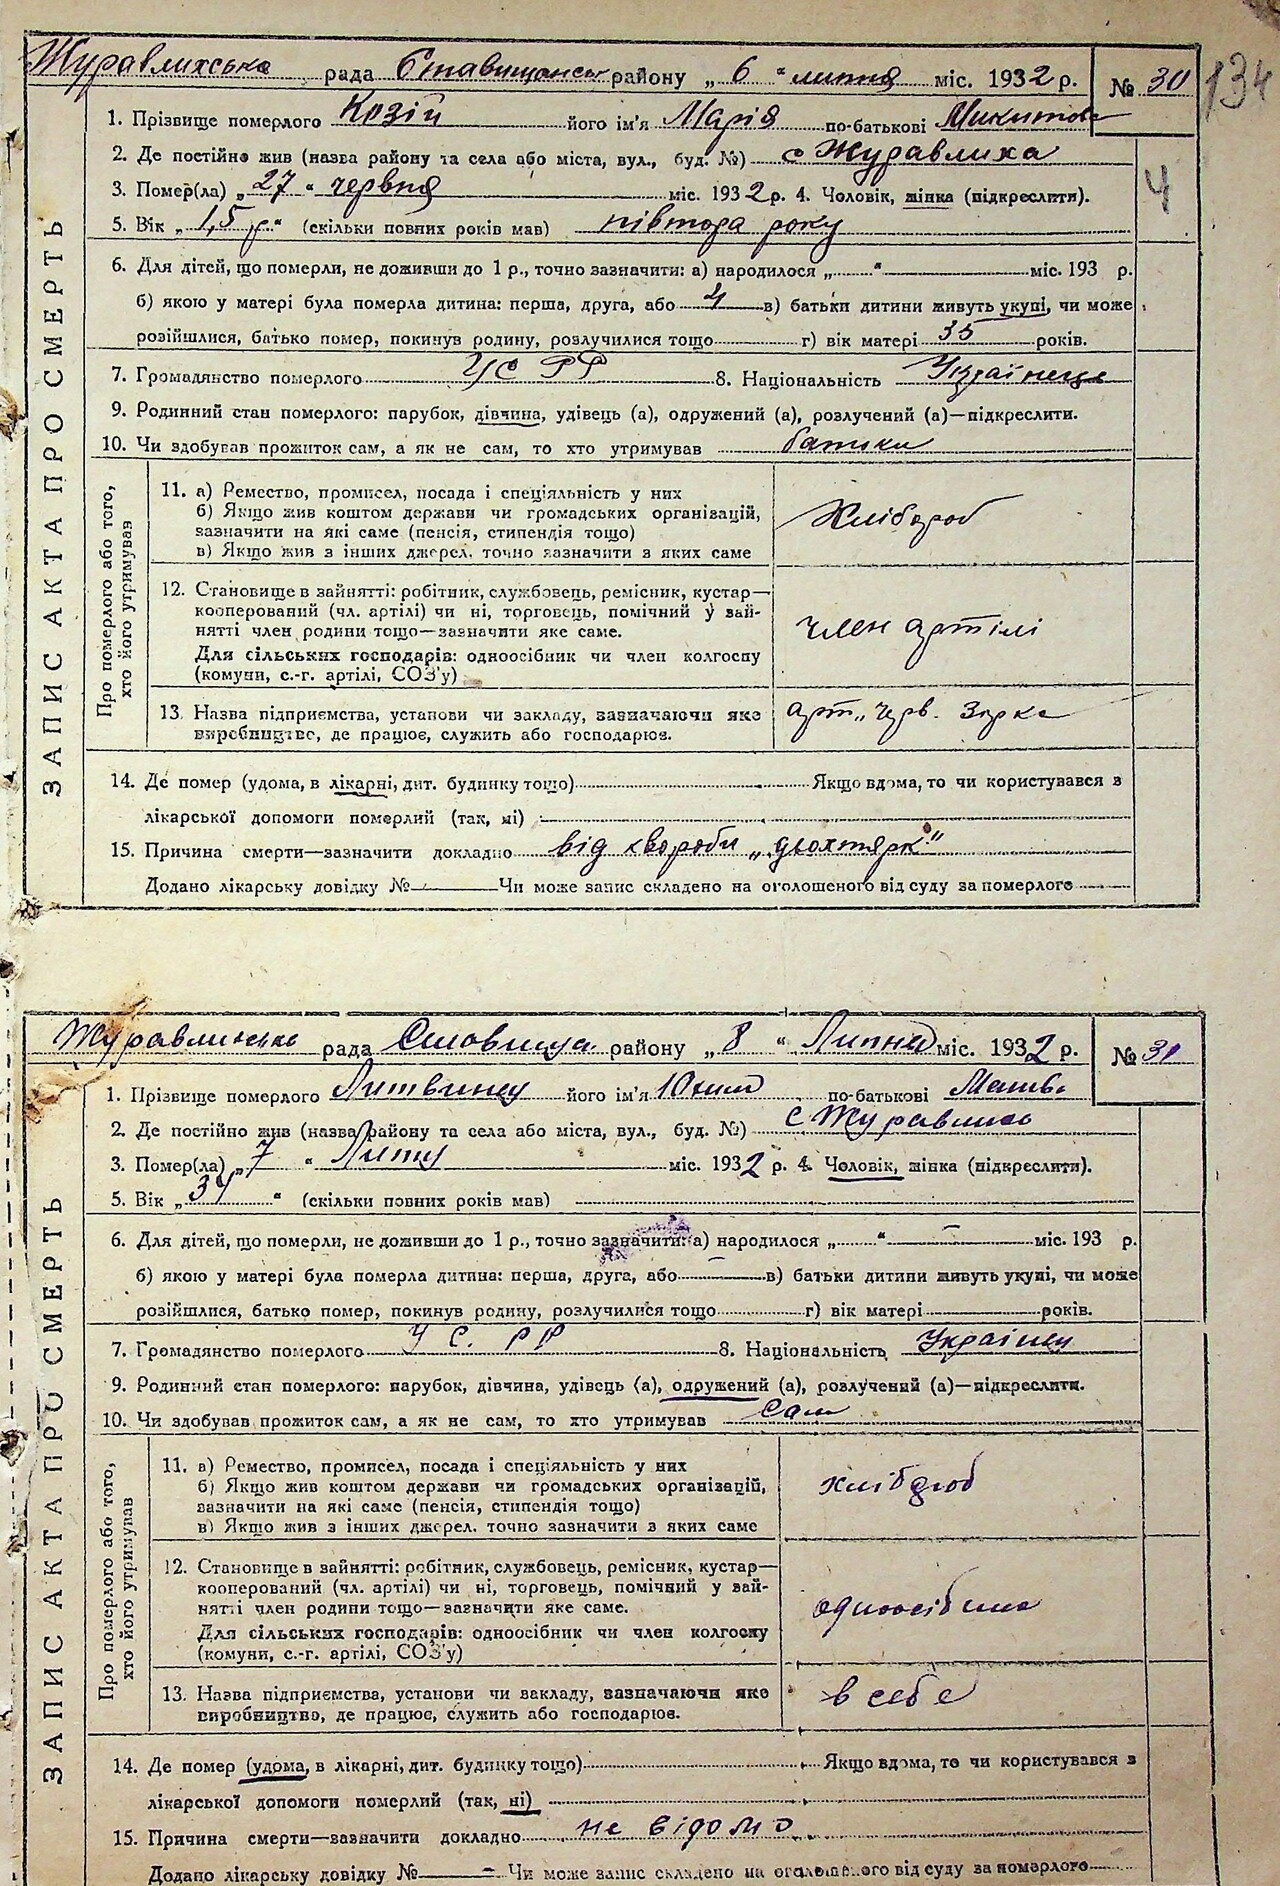 Журавлихська рада Ставищанськ району „ 6 “ липня міс. 1932 р. № 30
134
1. Прізвище померлого Козій його ім'я Марія по-батькові Микитов
2. Де постійно жив (назва району та села або міста, вул., буд. №) с Журавлиха
3. Помер(ла) „ 27 “ червня міс. 1932 р. 4. Чоловік, жінка (підкреслити).
4
5. Вік „ 1,5 р “ (скільки повних років мав) півтора року
6. Для дітей, що померли, не доживши до 1 р., точно зазначити: а) народилося „ “ міс. 193 р.
б) якою у матері була померла дитина: перша, друга, або 4 в) батьки дитини живуть укупі, чи може
розійшлися, батько помер, покинув родину, розлучилися тощо г) вік матері 35 років.
7. Громадянство померлого УСРР 8. Національність
9. Родинний стан померлого: парубок, дівчина, удівець (а), одружений (а), розлучений (а)—підкреслити.
10. Чи здобував прожиток сам, а як не сам, то хто утримував батьки
ЗАПИС АКТА ПРО СМЕРТЬ
Про померлого або того,
хто його утримував
11. а) Ремество, промисел, посада і спеціяльність у них
б) Якщо жив коштом держави чи громадських організацій,
зазначити на які саме (пенсія, стипендія тощо)
в) Якщо жив з інших джерел, точно зазначити з яких саме
Хлібороб
12. Становище в зайнятті: робітник, службовець, ремісник, кустар—
кооперований (чл. артілі) чи ні, торговець, помічний у зай-
нятті член родини тощо—зазначити яке саме.
Для сільських господарів: одноосібник чи член колгоспу
(комуни, с.-г. артілі, СОЗ'у)
член артілі
13. Назва підприємства, установи чи закладу, зазначаючи яке
виробництво, де працює, служить або господарює.
арт. „Черв. Зірка
14. Де помер (удома, в лікарні, дит. будинку тощо) Якщо вдома, то чи користувався з
лікарської допомоги померлий (так, ні)
15. Причина смерти—зазначити докладно від хвороби
Додано лікарську довідку № Чи може запис складено на оголошеного від суду за померлого
рада району „ 8 “ Липня міс. 1932 р. № 31
1. Прізвище померлого його ім'я по-батькові
2. Де постійно жив (назва району та села або міста, вул., буд. №) с
3. Помер(ла) „ 7 “ міс. 1932 р. 4. Чоловік, жінка (підкреслити).
5. Вік „ “ (скільки повних років мав)
6. Для дітей, що померли, не доживши до 1 р., точно зазначити: а) народилося „ “ міс. 193 р.
б) якою у матері була померла дитина: перша, друга, або в) батьки дитини живуть укупі, чи може
розійшлися, батько помер, покинув родину, розлучилися тощо г) вік матері років.
7. Громадянство померлого У С. РР 8. Національність
9. Родинний стан померлого: парубок, дівчина, удівець (а), одружений (а), розлучений (а)—підкреслити.
10. Чи здобував прожиток сам, а як не сам, то хто утримував Сам
ЗАПИС АКТА ПРО СМЕРТЬ
Про померлого або того,
хто його утримував
11. а) Ремество, промисел, посада і спеціяльність у них
б) Якщо жив коштом держави чи громадських організацій,
зазначити на які саме (пенсія, стипендія тощо)
в) Якщо жив з інших джерел, точно зазначити з яких саме
хлібороб
12. Становище в зайнятті: робітник, службовець, ремісник, кустар—
кооперований (чл. артілі) чи ні, торговець, помічний у зай-
нятті член родини тощо—зазначити яке саме.
Для сільських господарів: одноосібник чи член колгоспу
(комуни, с.-г. артілі, СОЗ'у)
13. Назва підприємства, установи чи закладу, зазначаючи яке
виробництво, де працює, служить або господарює.
в себе
14. Де помер (удома, в лікарні, дит. будинку тощо) Якщо вдома, то чи користувався з
лікарської допомоги померлий (так, ні)
15. Причина смерти—зазначити докладно не відомо
Додано лікарську довідку № Чи може запис складено на оголошеного від суду за померлого